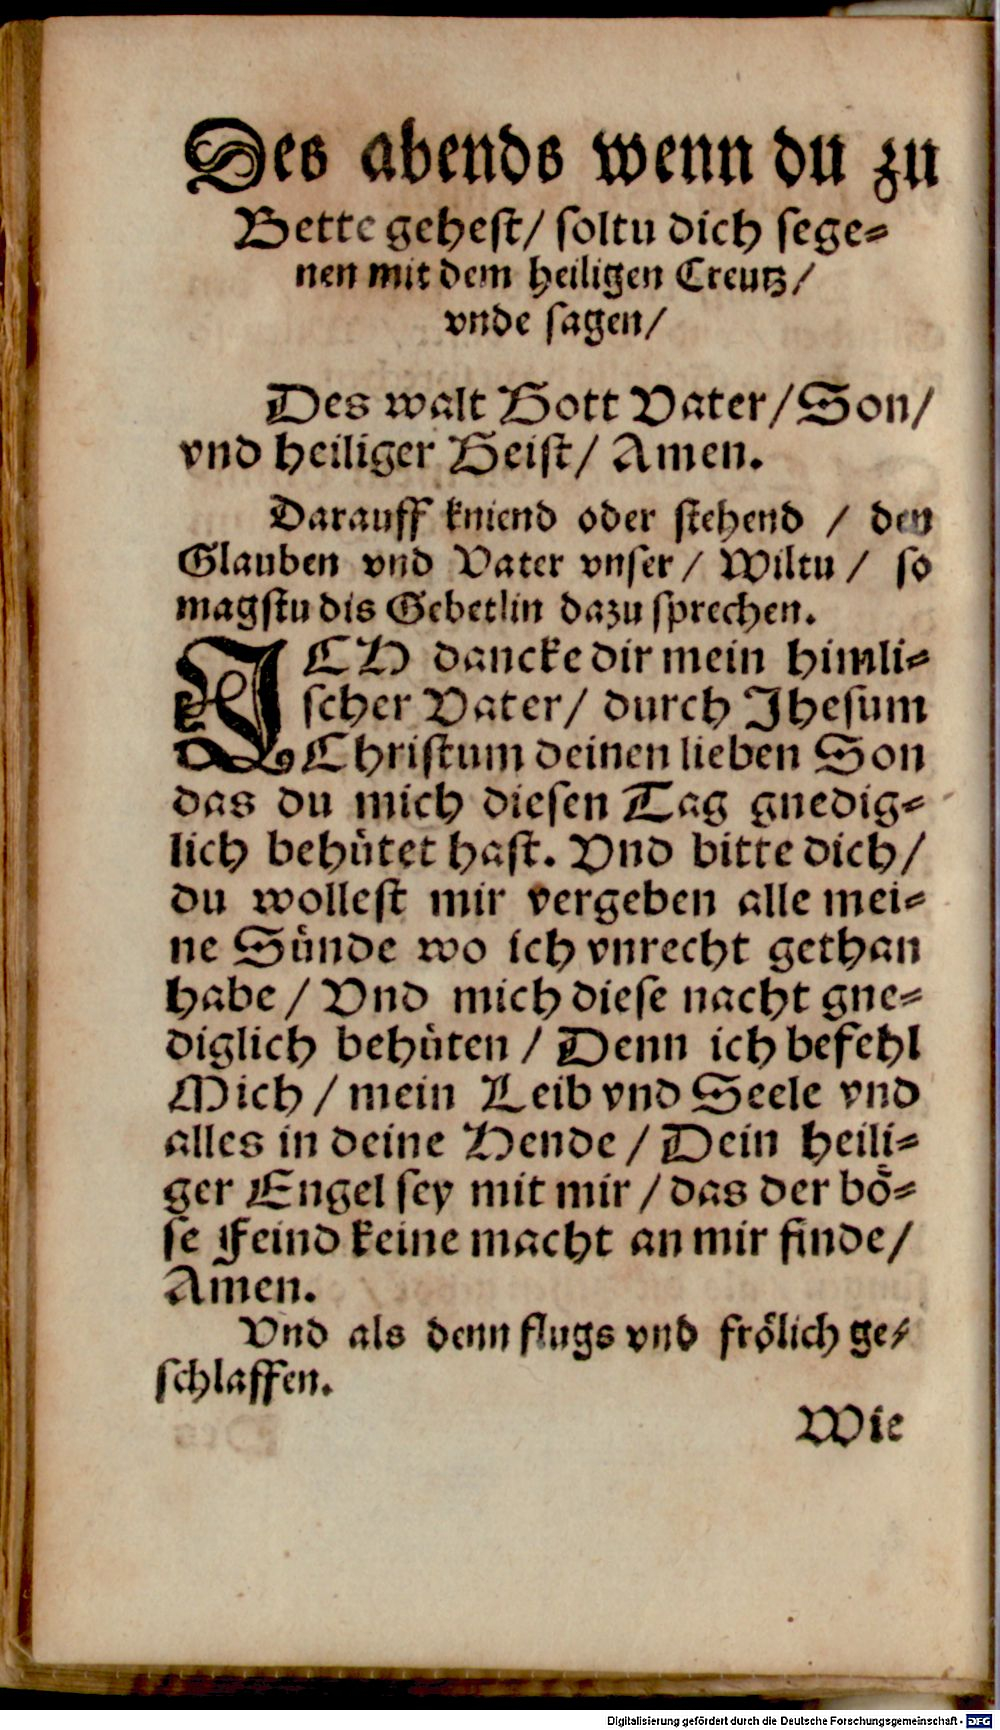 Des abends wenn du zu
Bette gehest/ soltu dich sege-
nen mit dem heiligen Creutz/
vnde sagen/
Des walt Gott Vater/ Son/
vnd heiliger Geist/ Amen.
Darauff kniend oder stehend / den
Glauben vnd Vater vnser/ Wiltu / so
magstu dis Gebetlin dazu sprechen.
ICH dancke dir mein himli-
scher Vater/ durch Jhesum
Christum deinen lieben Son
das du mich diesen Tag gnedig-
lich behütet hast. Vnd bitte dich/
du wollest mir vergeben alle mei-
ne Sünde wo ich vnrecht gethan
habe / Vnd mich diese nacht gne-
diglich behüten / Denn ich befehl
Mich / mein Leib vnd Seele vnd
alles in deine Hende / Dein heili-
ger Engel sey mit mir / das der bö-
se Feind keine macht an mir finde/
Amen.
Vnd als denn flugs vnd frölich ge-
schlaffen.
Wie
Digitalisierung gefördert durch die Deutsche Forschungsgemeinschaft - DFG